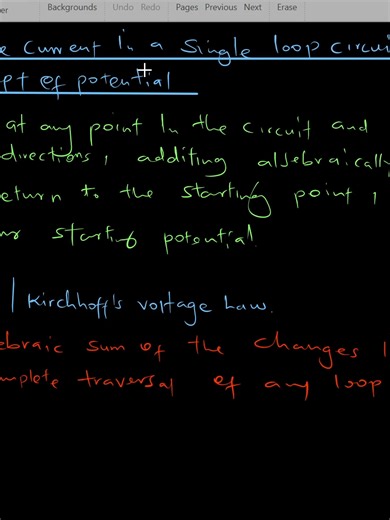 Backgrounds Undo Redo Pages Previous Next Erase
Current In a Single loop circui
pt of potential
at any point In the circuit and
directions, additing algebraically
eturn to the starting point,
starting potential.
| Kirchhoff's voltage Law.
ebraic sum of the changes I
mplete traversal of any loop